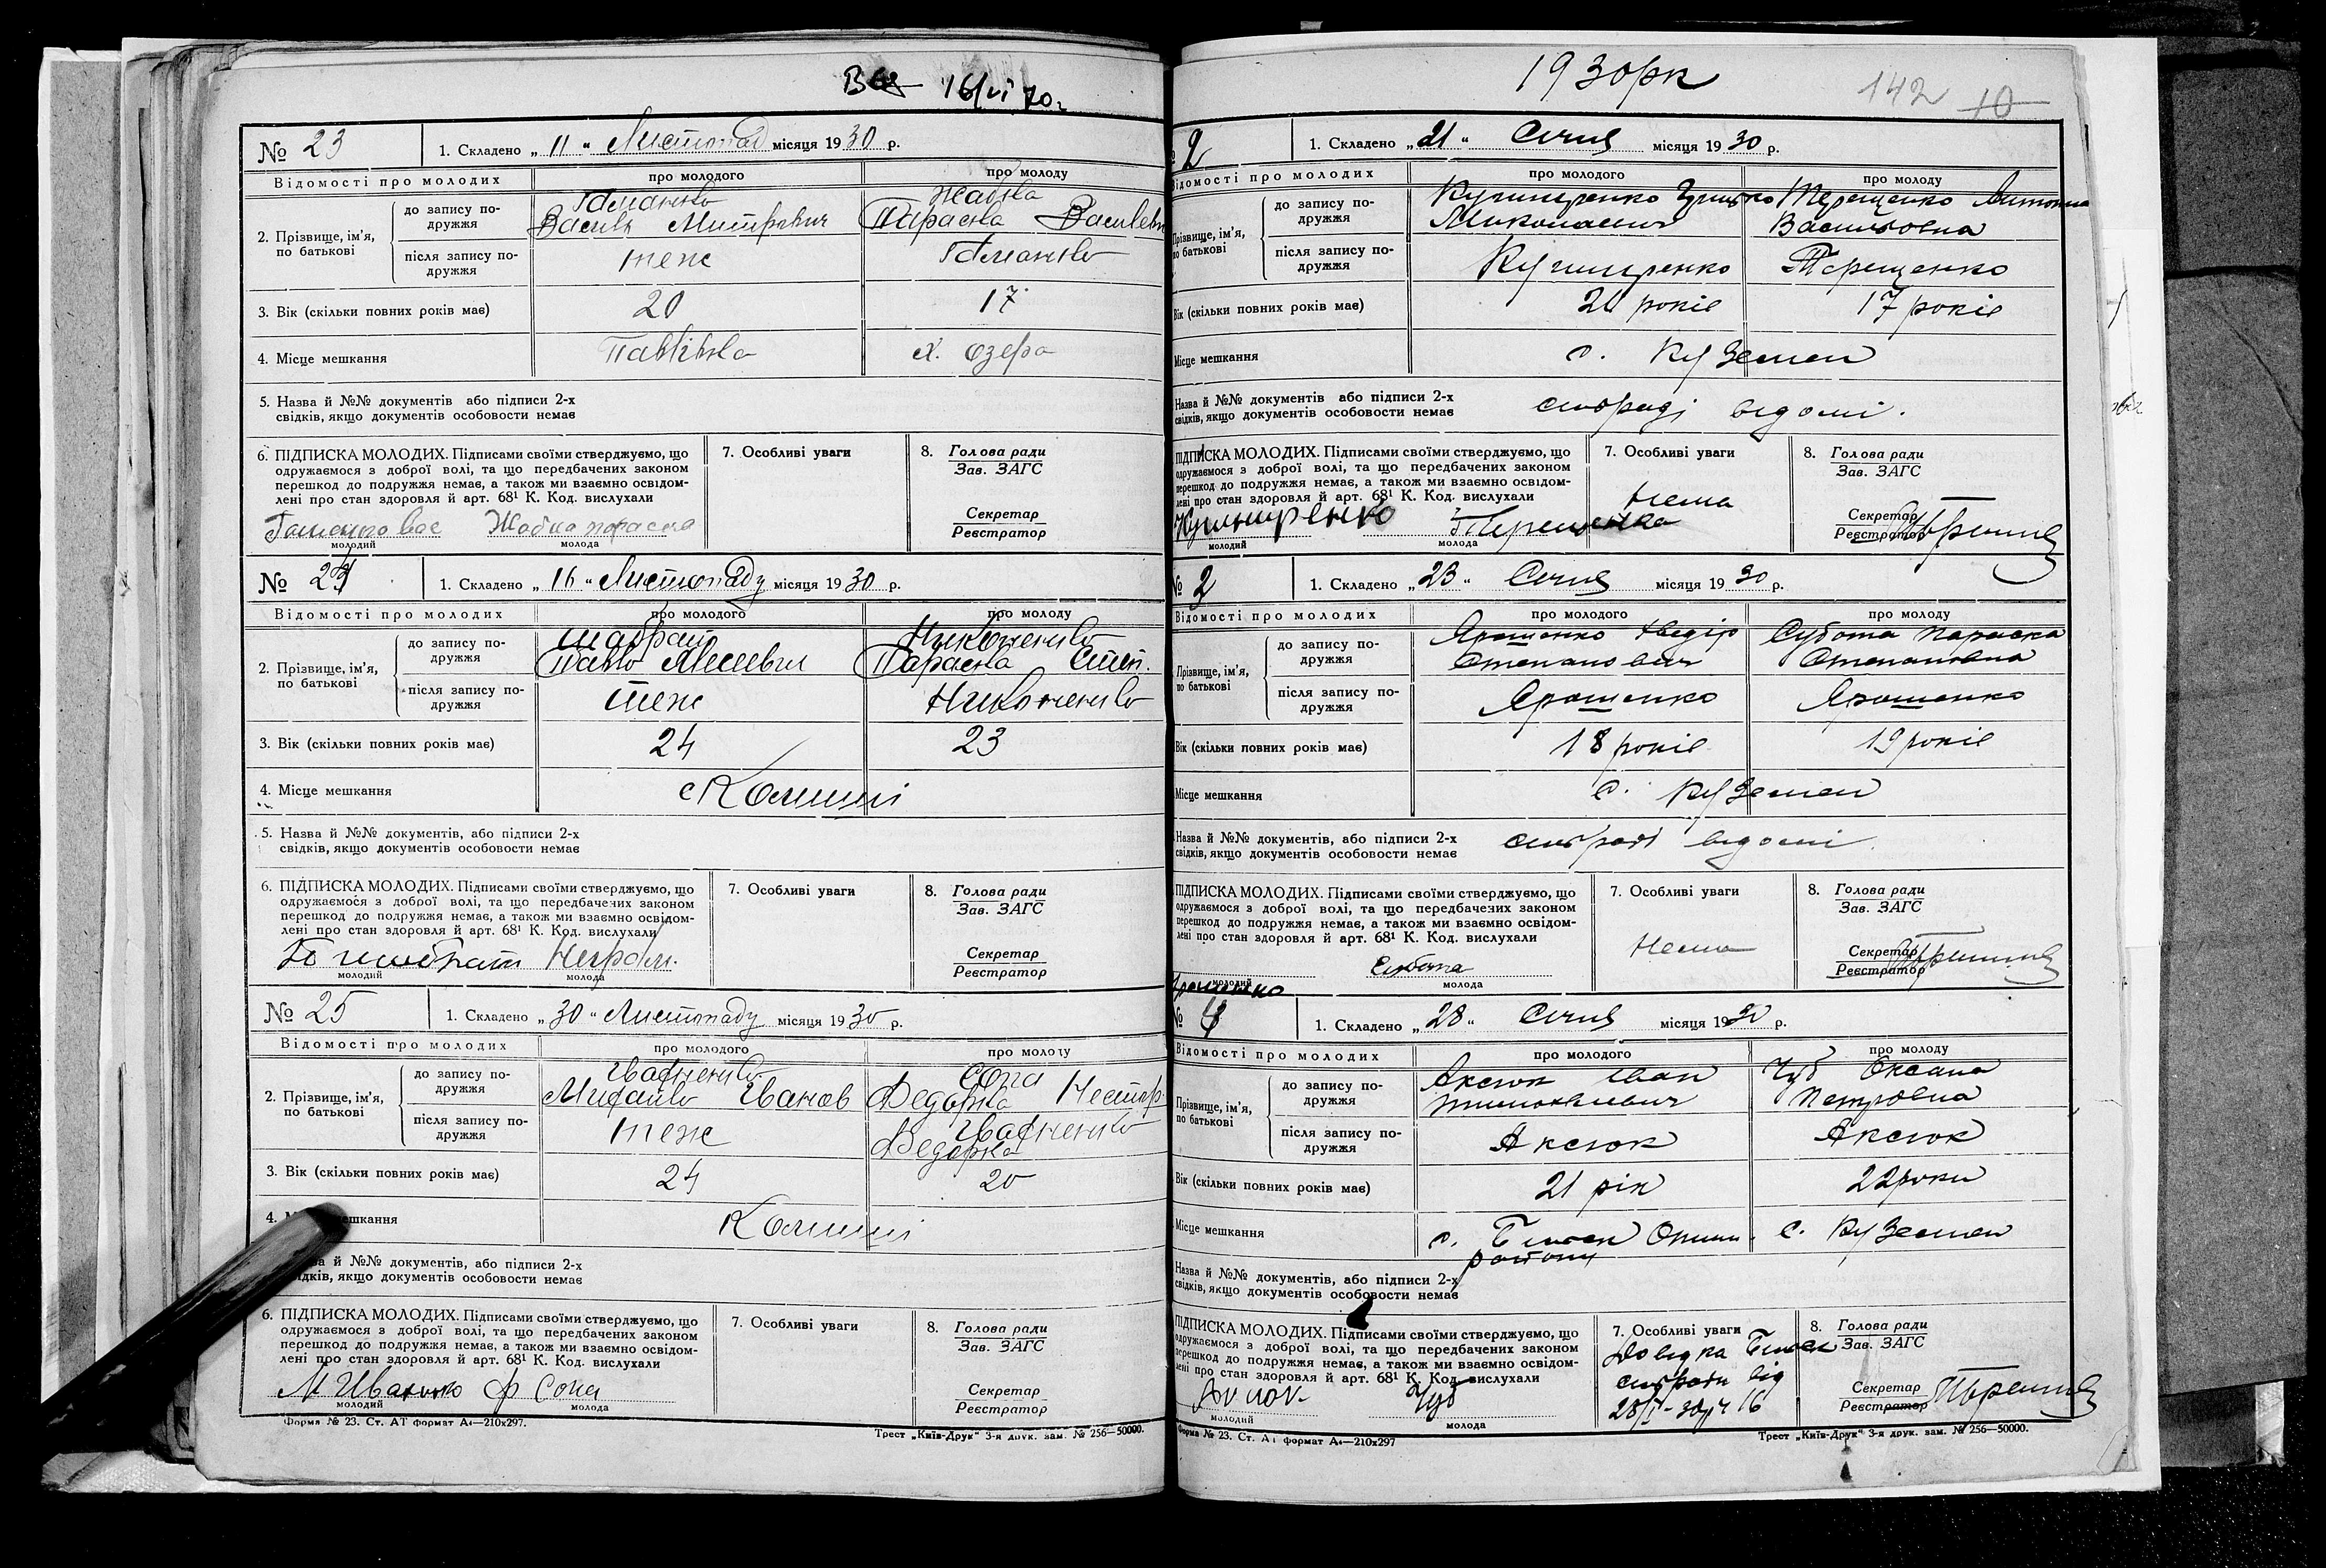 16/VI 70г
№ 23
1. Складено „ 11 “ Листопад місяця 1930 р.
Відомості про молодих
про молодого
про молоду
2. Прізвище, ім'я, по батькові
до запису подружжя
Василь Митрович
Жабка
Параска Василевн
після запису подружжя
теж
3. Вік (скільки повних років має)
20
17
4. Місце мешкання
Павлівка
х. Озера
5. Назва й №№ документів або підписи 2-х
свідків, якщо документів особовости немає
6. ПІДПИСКА МОЛОДИХ. Підписами своїми стверджуємо, що
одружаємося з доброї волі, та що передбачених законом
перешкод до подружжя немає, а також ми взаємно освідом-
лені про стан здоровля й арт. 68¹ К. Код. вислухали
Жабка параска
молодий
молода
7. Особливі уваги
8. Голова ради
Зав. ЗАГС
Секретар
Реєстратор
№ 24
1. Складено „ 16 “ Листопаду місяця 1930 р.
Відомості про молодих
про молодого
про молоду
2. Прізвище, ім'я, по батькові
до запису подружжя
Шабрат
Павло
Никоненко
Параска Степ.
після запису подружжя
теж
Никоненко
3. Вік (скільки повних років має)
24
23
4. Місце мешкання
5. Назва й №№ документів, або підписи 2-х
свідків, якщо документів особовости немає
6. ПІДПИСКА МОЛОДИХ. Підписами своїми стверджуємо, що
одружаємося з доброї волі, та що передбачених законом
перешкод до подружжя немає, а також ми взаємно освідом-
лені про стан здоровля й арт. 68¹ К. Код. вислухали
молодий
молода
7. Особливі уваги
8. Голова ради
Зав. ЗАГС
Секретар
Реєстратор
№ 25
1. Складено „ 30 “ Листопаду місяця 1930 р.
Відомості про молодих
про молодого
про молоду
2. Прізвище, ім'я, по батькові
до запису подружжя
Михайло Іванов
Сога
Федорка Нестер
після запису подружжя
теж
Федорка
3. Вік (скільки повних років має)
24
20
4. мешкання
5. Назва й №№ документів, або підписи 2-х
свідків, якщо документів особовости немає
6. ПІДПИСКА МОЛОДИХ. Підписами своїми стверджуємо, що
одружаємося з доброї волі, та що передбачених законом
перешкод до подружжя немає, а також ми взаємно освідом-
лені про стан здоровля й арт. 68¹ К. Код. вислухали
Ф Сога
молодий
молода
7. Особливі уваги
8. Голова ради
Зав. ЗАГС
Секретар
Реєстратор
Форма № 23. Ст. АТ формат А4—210х297.
Трест „Київ-Друк“ 3-я друк. зам. № 256—50000.
1930 рік
142 10
№ 2
1. Складено „ 21 “ Січня місяця 1930 р.
Відомості про молодих
про молодого
про молоду
Прізвище, ім'я, по батькові
до запису подружжя
Кушніренко Грицько
Миколаевич
Терещенко Антонина
Васильовна
після запису подружжя
Кушніренко
Терещенко
Вік (скільки повних років має)
21 років
17 років
Місце мешкання
с. Куземен
Назва й №№ документів або підписи 2-х
свідків, якщо документів особовости немає
сільраді відомі.
ПІДПИСКА МОЛОДИХ. Підписами своїми стверджуємо, що
одружаємося з доброї волі, та що передбачених законом
перешкод до подружжя немає, а також ми взаємно освідом-
лені про стан здоровля й арт. 68¹ К. Код. вислухали
Кушниренко
молодий
молода
7. Особливі уваги
Нема
8. Голова ради
Зав. ЗАГС
Секретар
Реєстратор
№
1. Складено „ 23 “ Січня місяця 1930 р.
Відомості про молодих
про молодого
про молоду
Прізвище, ім'я, по батькові
до запису подружжя
Ярошенко
Степанович
Субота Параска
Степановна
після запису подружжя
Ярошенко
Ярошенко
Вік (скільки повних років має)
18 років
19 років
Місце мешкання
с. Куземен
Назва й №№ документів, або підписи 2-х
свідків, якщо документів особовости немає
сільраді відомі
ПІДПИСКА МОЛОДИХ. Підписами своїми стверджуємо, що
одружаємося з доброї волі, та що передбачених законом
перешкод до подружжя немає, а також ми взаємно освідом-
лені про стан здоровля й арт. 68¹ К. Код. вислухали
Ярошенко
Субота
молодий
молода
7. Особливі уваги
Нема
8. Голова ради
Зав. ЗАГС
Секретар
Реєстратор
№ 4
1. Складено „ 28 “ Січня місяця 1930 р.
Відомості про молодих
про молодого
про молоду
Прізвище, ім'я, по батькові
до запису подружжя
Аксюк Іван
Чуб Оксана
Петровна
після запису подружжя
Аксюк
Аксюк
Вік (скільки повних років має)
21 рік
22 роки
Місце мешкання
с. Більськ Опішн. району
с. Куземен
Назва й №№ документів, або підписи 2-х
свідків, якщо документів особовости немає
ПІДПИСКА МОЛОДИХ. Підписами своїми стверджуємо, що
одружаємося з доброї волі, та що передбачених законом
перешкод до подружжя немає, а також ми взаємно освідом-
лені про стан здоровля й арт. 68¹ К. Код. вислухали
Чуб
молодий
молода
7. Особливі уваги
Довідка Більськ
сільради від
28/I-30р ч 16
8. Голова ради
Зав. ЗАГС
Секретар
Реєстратор
Форма № 23. Ст. АТ формат А4—210х297
Трест „Київ-Друк“ 3-я друк. зам. № 256—50000.